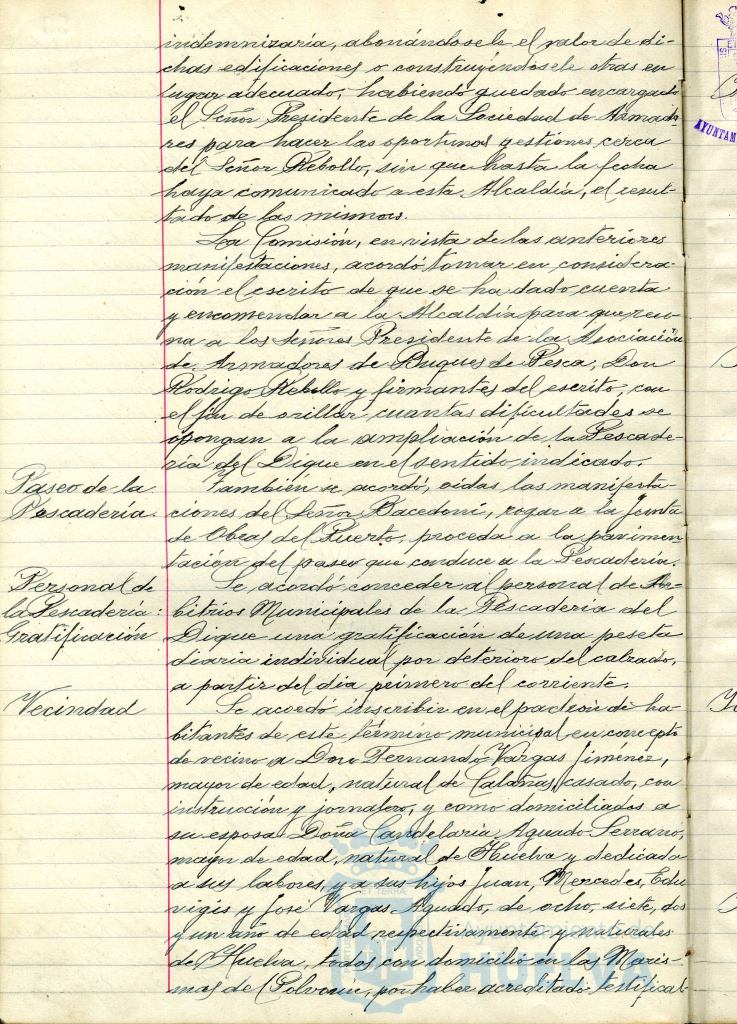 indemnizaría, abonándosele el valor de di-
chas edificaciones o construyéndosele otras en
lugar adecuado, habiendo quedado encargado
el Señor Presidente de la Sociedad de Armado-
res para hacer las oportunas gestiones cerca
del Señor Rebollo, sin que hasta la fecha
haya comunicado a esta Alcaldía, el resul-
tado de las mismas.
La Comisión, en vista de las anteriores
manifestaciones, acordó tomar en considera-
ción el escrito de que se ha dado cuenta
y encomendar a la Alcaldía para que reu-
na a los Señores Presidente de la Asociación
de Armadores de Buques de Pesca, Don
Rodrigo Rebollo y firmantes del escrito, con
el fin de orillar cuantas dificultades se
opongan a la ampliación de la Pescade-
ría del Dique en el sentido indicado.
Paseo de la
Pescadería.
También se acordó, oidas las manifesta-
ciones del Señor Bacedoni, rogar a la Junta
de Obras del Puerto, proceda a la pavimen-
tación del paseo que conduce a la Pescadería.
Personal de
la Pescadería:
Gratificación
Se acordó conceder al personal de Ar-
bitrios Municipales de la Pescadería del
Dique una gratificación de una peseta
diaria individual por deterioro del calzado,
a partir del dia primero del corriente.
Vecindad
Se acordó inscribir en el padrón de ha-
bitantes de este término municipal en concepto
de vecino a Don Fernando Vargas Jiménez,
mayor de edad, natural de Calañas, casado, con
instrucción y jornalero, y como domiciliados a
su esposa Doña Candelaria Aguado Serrano,
mayor de edad, natural de Huelva y dedicada
a sus labores, y a sus hijos Juan, Mercedes, Edu
vigis y José Vargas Aguado, de ocho, siete, dos
y un año de edad, respectivamente y naturales
de Huelva, todos con domicilio en las Maris-
mas del Polvorín, por haber acreditado testifical-
AYUNTAM
HUELVA